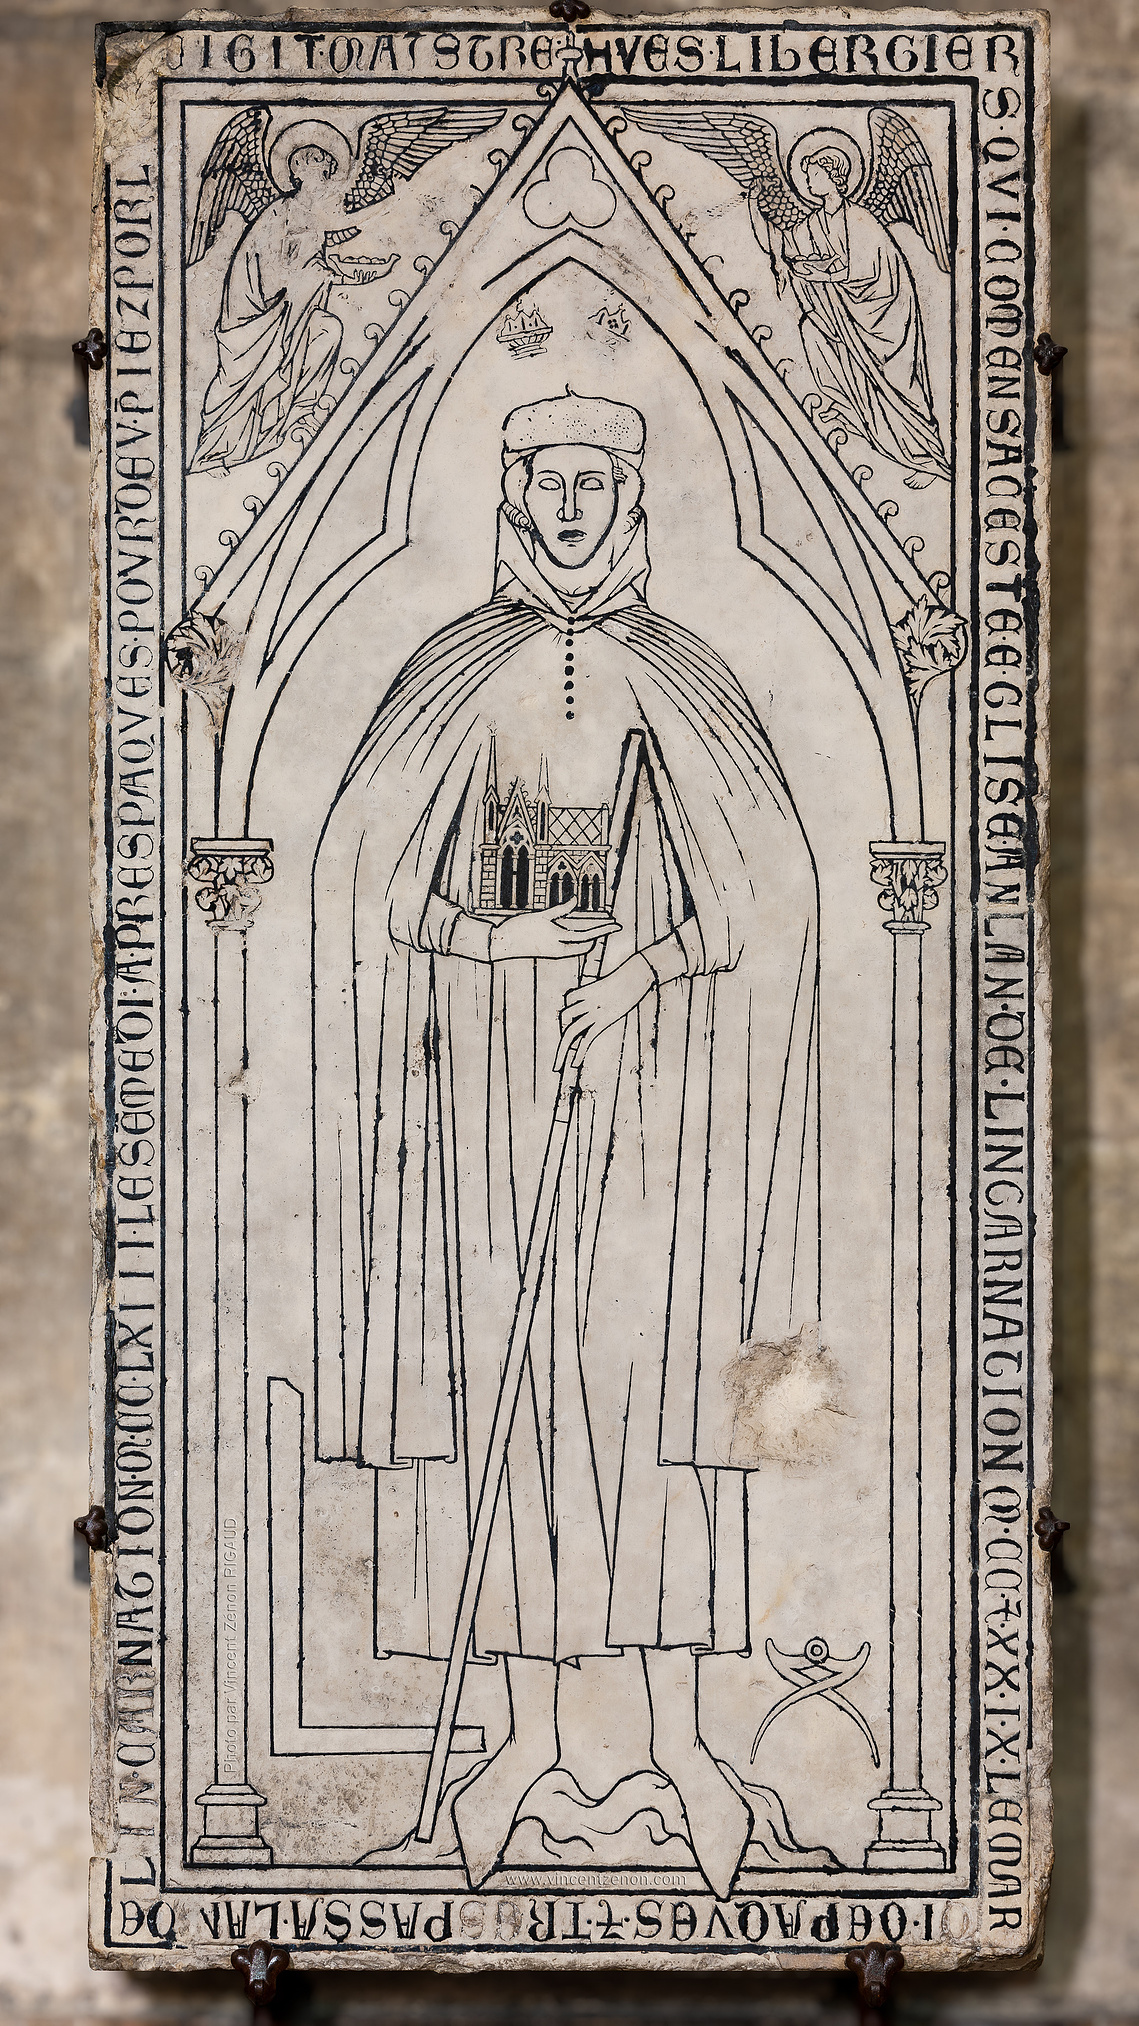 IGIT·MAISTRE·HVES·LIBERGIER
S·QVI·COMENSA·CESTE·EGLISE·AN·LAN·DE·LINCARNATION·M·CC·⁊·XX·IX·LE·MAR
DI·DE·PAQVES·⁊·TRESPASSA·LAN·DE
LINCARNATION·M·CC·LXIII·LE·SEMEDI·APRES·PAQVES·POVR·DEV·P̄IEZ·POR·L
Photo par Vincent Zénon RIGAUD
www.vincentzenon.com